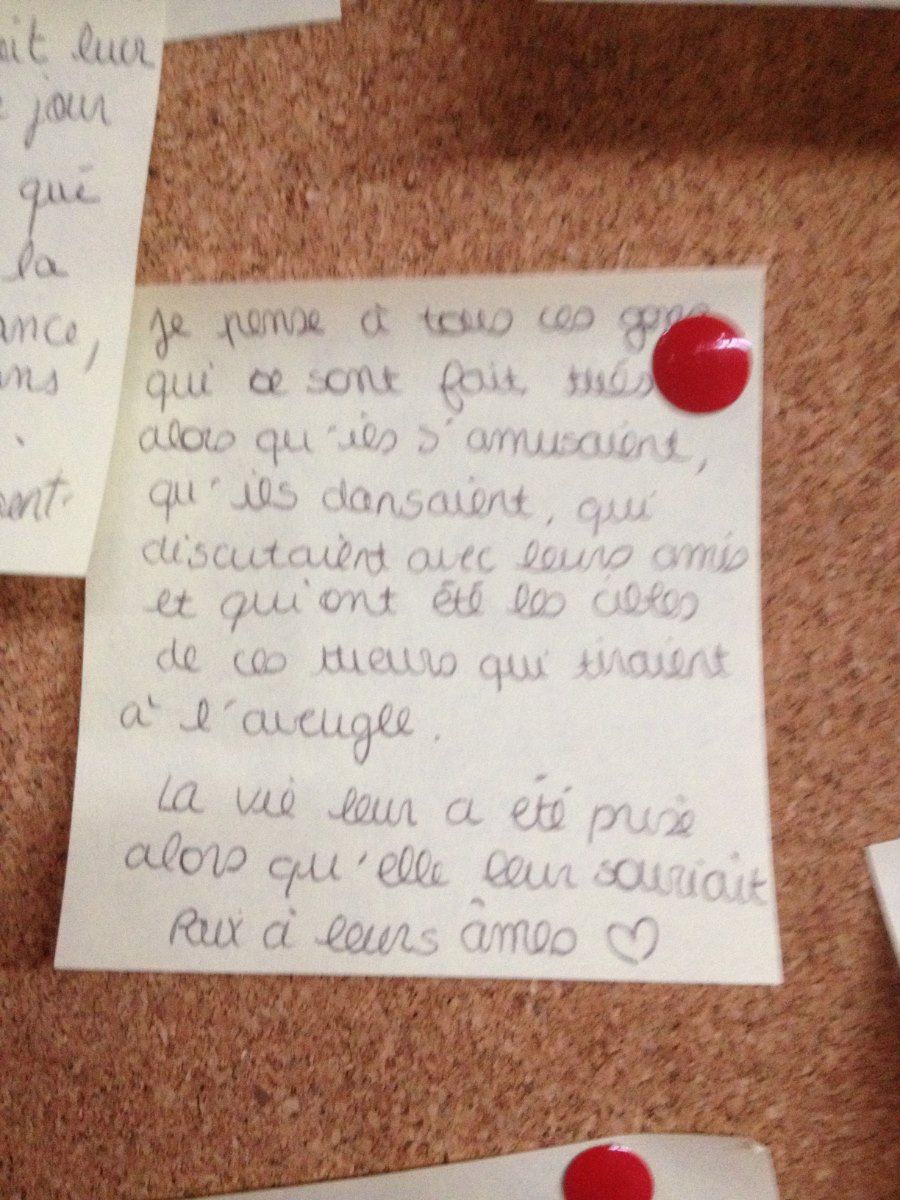 it leur
jour
qué
la
ance,
ans
.
ent.
Je pense à tous ces gens
qui ce sont fait tués
alors qu'ils s'amusaient,
qu'ils dansaient, qui
discutaient avec leurs amis
et qui ont été les cibles
de ces tueurs qui tiraient
à l'aveugle.
La vie leur a été prise
alors qu'elle leur souriait
Paix à leurs âmes ♡